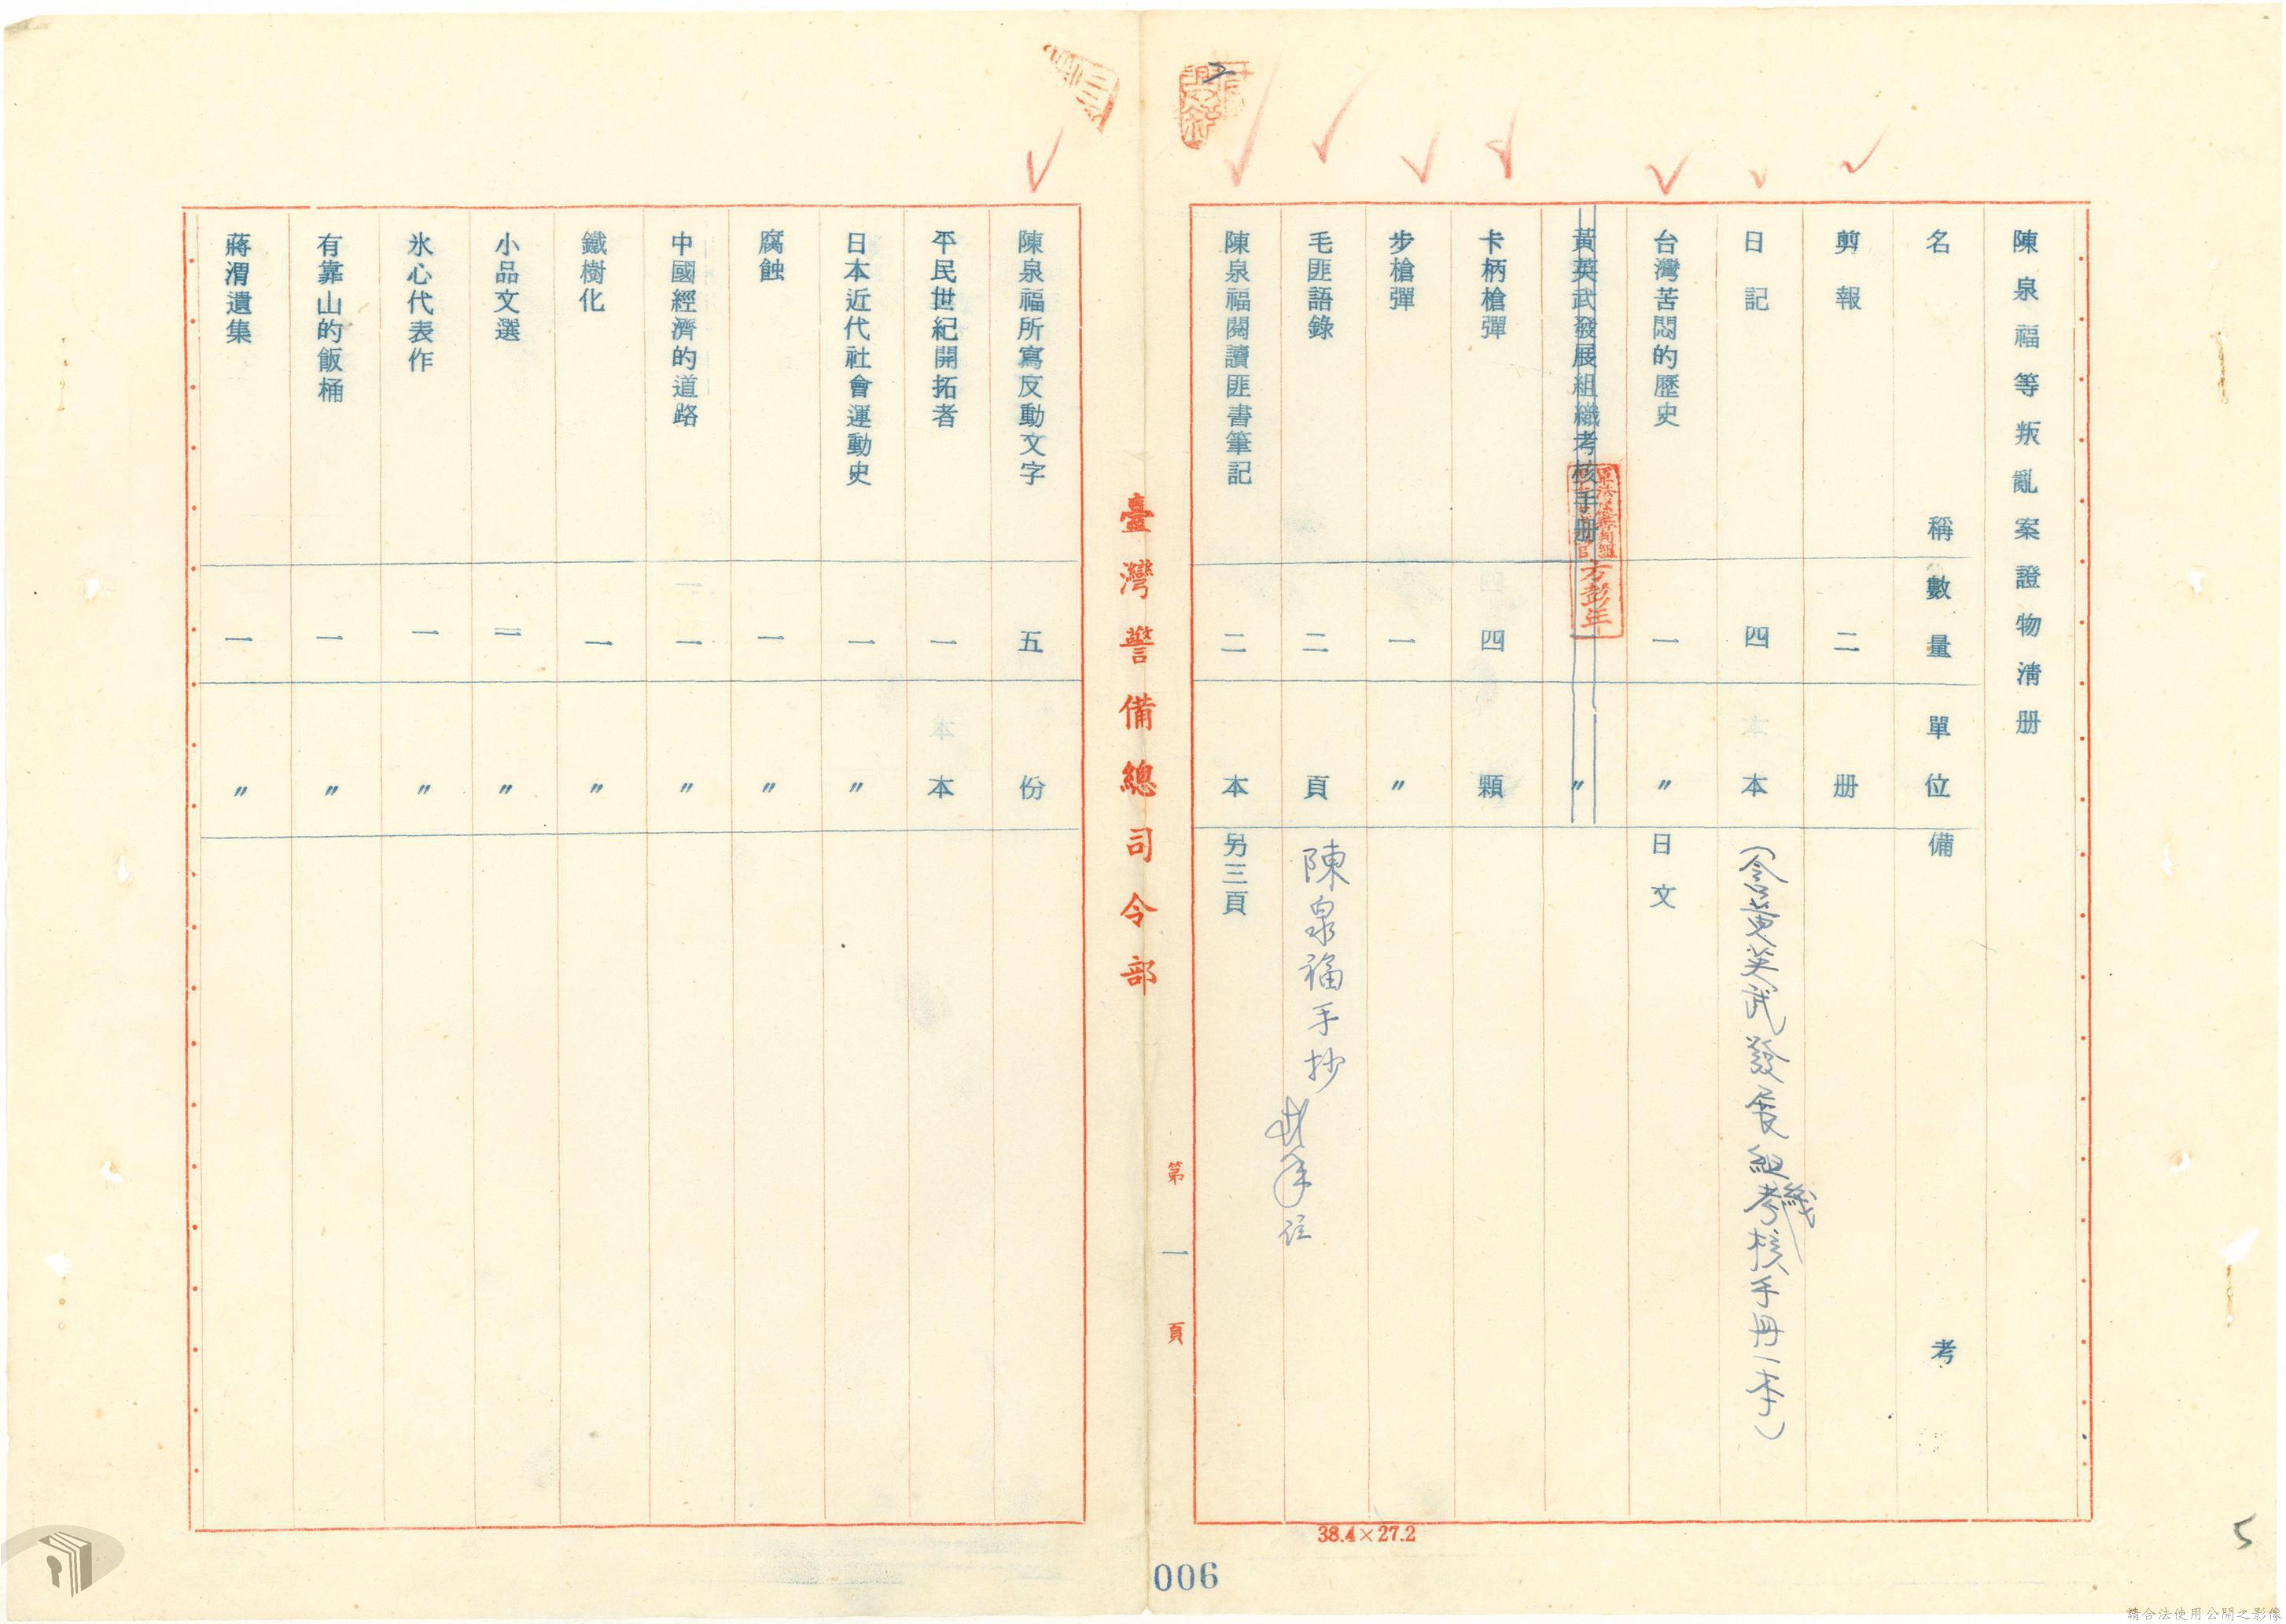 陳泉福等叛亂案證物清册
名稱 數量 單位 備考
剪報 二 册
日記 四 本 (含黃英武發展組織考核手冊一本)
台灣苦悶的歷史 一 〃 日文
黃英武發展組織考核手册 〃
方彭年
卡柄槍彈 四 顆
步槍彈 一 〃
毛匪語錄 二 頁 陳泉福手抄
陳泉福閱讀匪書筆記 二 本 另三頁
臺灣警備總司令部
第一頁
陳泉福所寫反動文字 五 份
平民世紀開拓者 一 本
日本近代社會運動史 一 〃
腐蝕 一 〃
中國經濟的道路 一 〃
鐵樹化 一 〃
小品文選 一 〃
氷心代表作 一 〃
有靠山的飯桶 一 〃
蔣渭遺集 一 〃
38.4×27.2
006
5
請合法使用公開之影像